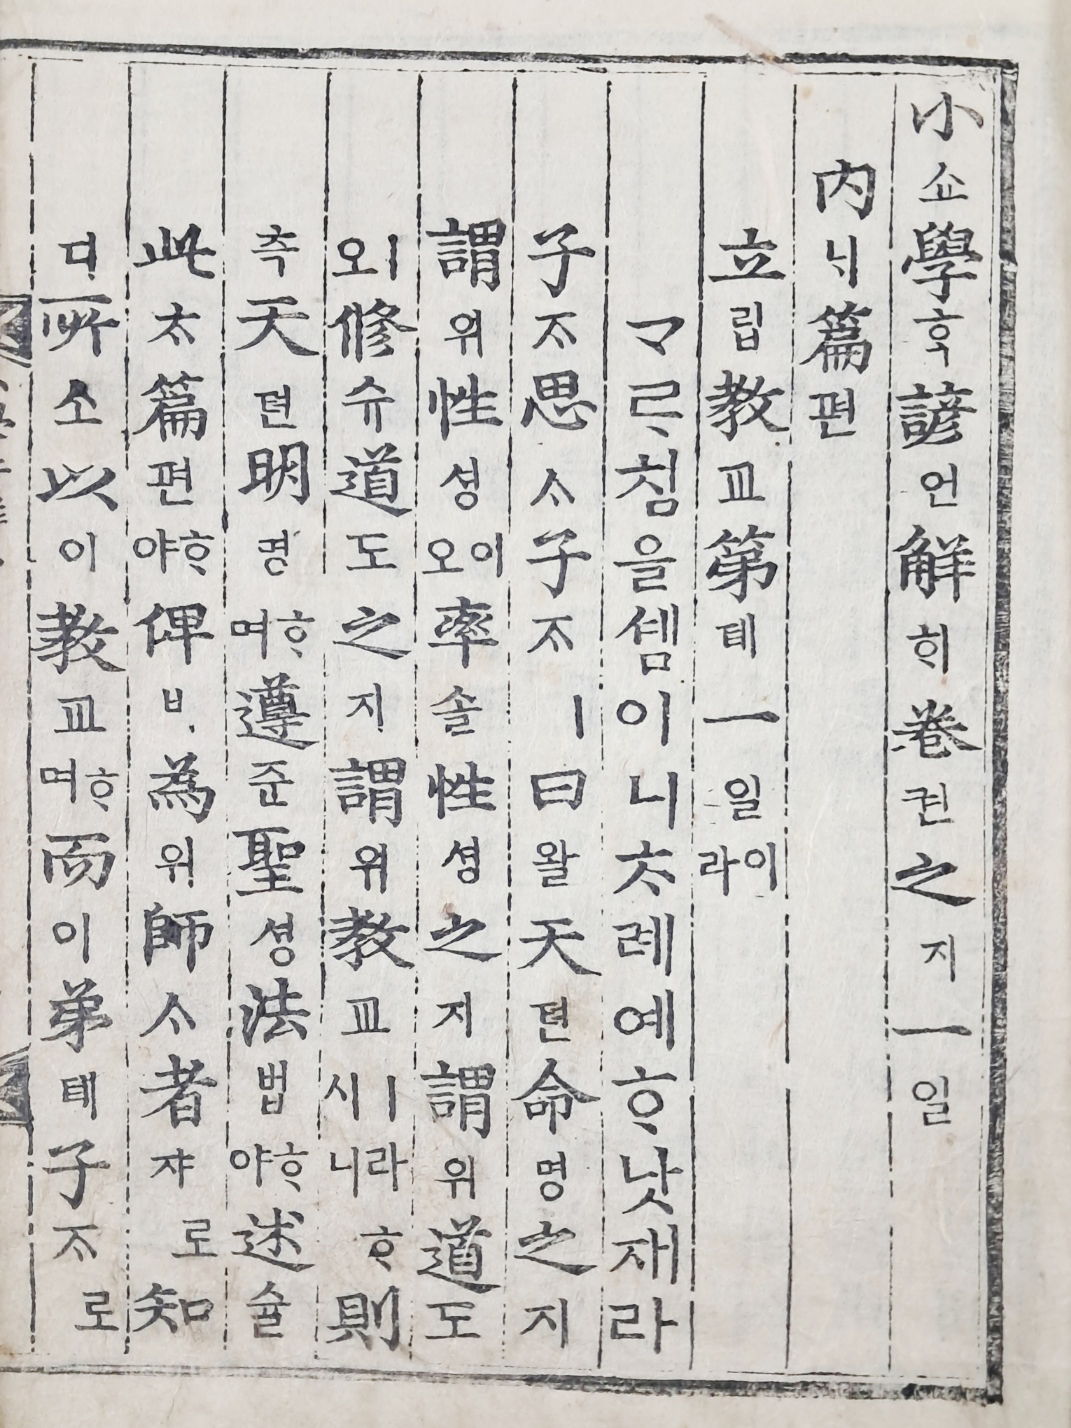 小쇼學ᄒᆞᆨ諺언解ᄒᆡ卷권之지一일
內ᄂᆡ篇편
立립敎교第뎨一일이라
ᄀᆞᄅᆞ침을셈이니ᄎᆞ례예ᄒᆞ낫재라
子ᄌᆞ思ᄉᆞ子ᄌᆞㅣ曰왈天텬命명之지
謂위性셩이오率솔性셩之지謂위道도
ㅣ오修슈道도之지謂위敎교ㅣ라시니ᄒᆞ則
측天텬明명ᄒᆞ며遵준聖셩法법ᄒᆞ야述슐
此ᄎᆞ篇편ᄒᆞ야俾ᄇᆡ爲위師ᄉᆞ者쟈로知
디所소以이敎교ᄒᆞ며而이弟뎨子ᄌᆞ로